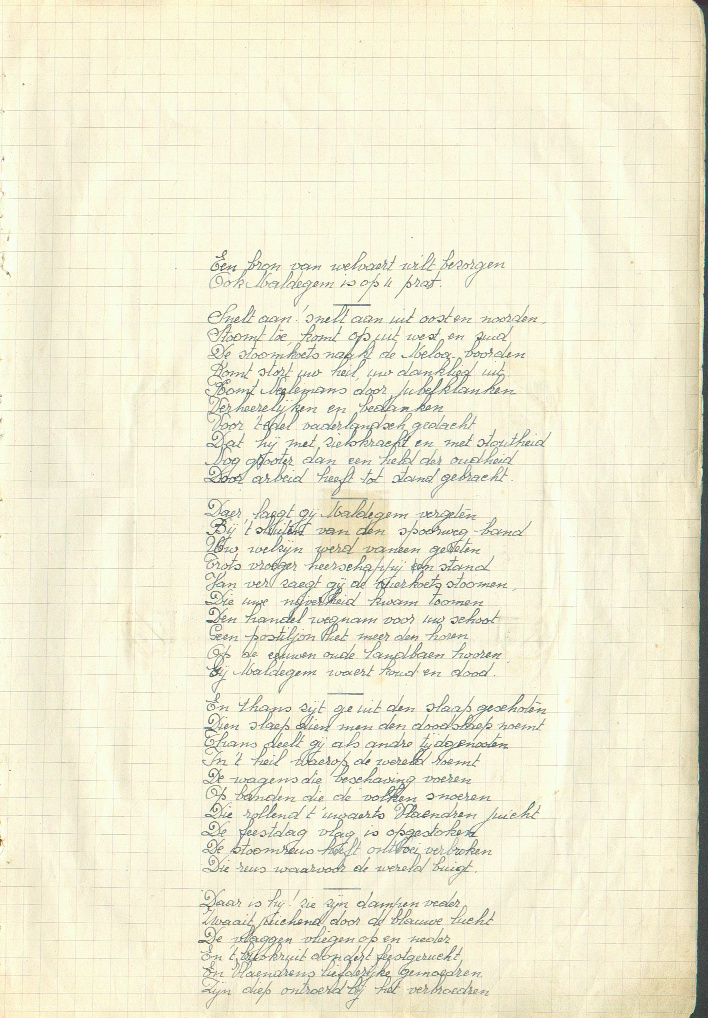 Een bron van welvaert wilt bezorgen
Ook Maldegem is op u prat.
Snelt aan! snelt aan uit oost en noorden,
Stoomt toe, komt op uit west en zuid
De stoomkoets naakt de boorden
Komt stort uw heil, uw danklied uit
Komt Neelemans door jubelklanken
Verheerelijken en bedanken
Voor 't edel vaderlandsch gedacht
Dat hij met zielskracht en met stoutheid
Nog grooter dan een held der oudheid
Door arbeid heeft tot stand gebracht.
Daer laegt gij Maldegem vergeten
Bij 't sluiten van den spoorweg-band
Uw welzijn werd vaneen gereten
Trots vroeger heerschappij en stand
Van ver zaegt gij de vuerkoets stoomen,
Die uwe nijverheid kwam toomen
Den handel wegnam voor uw schoot
Geen postiljon liet meer den horen
Op de eeuwen oude landbaen hooren
Gij Maldegem waert koud en dood.
En thans zijt ge uit den slaap geschoten
Dien slaep dien men den doodslaep noemt
Thans deelt gij als andre tijdgenooten
In 't heil waerop de wereld roemt
De wagens die beschaving voeren
Op banden die de volken snoeren
Die rollend t' uwaerts Vlaendren juicht
De feestdag vlag is opgestoken
De stoomreus heeft verbroken
Die reus waarvoor de wereld buigt.
Daar is hij! zie zijn dampen veder
Zwaait juichend door de blauwe lucht
De vlaggen vliegen op en neder
En 't buskruit dondert feestgerucht
En Vlaendrens liefderijke gemoedren
Zijn diep ontroerd bij het verbroedren